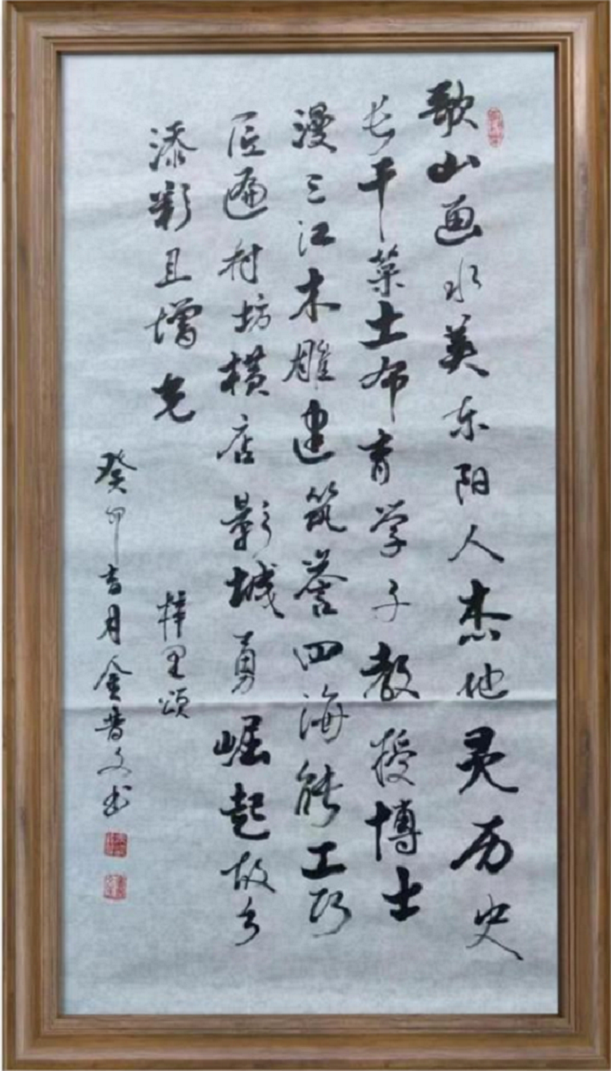 歌山画水美东阳人杰地灵历史
长干菜土布育学子教授博士
漫三江木雕建筑誉四海能工巧
匠遍村坊横店影城勇崛起故乡
添彩且增光
梓里颂
癸卯吉月金晋文书